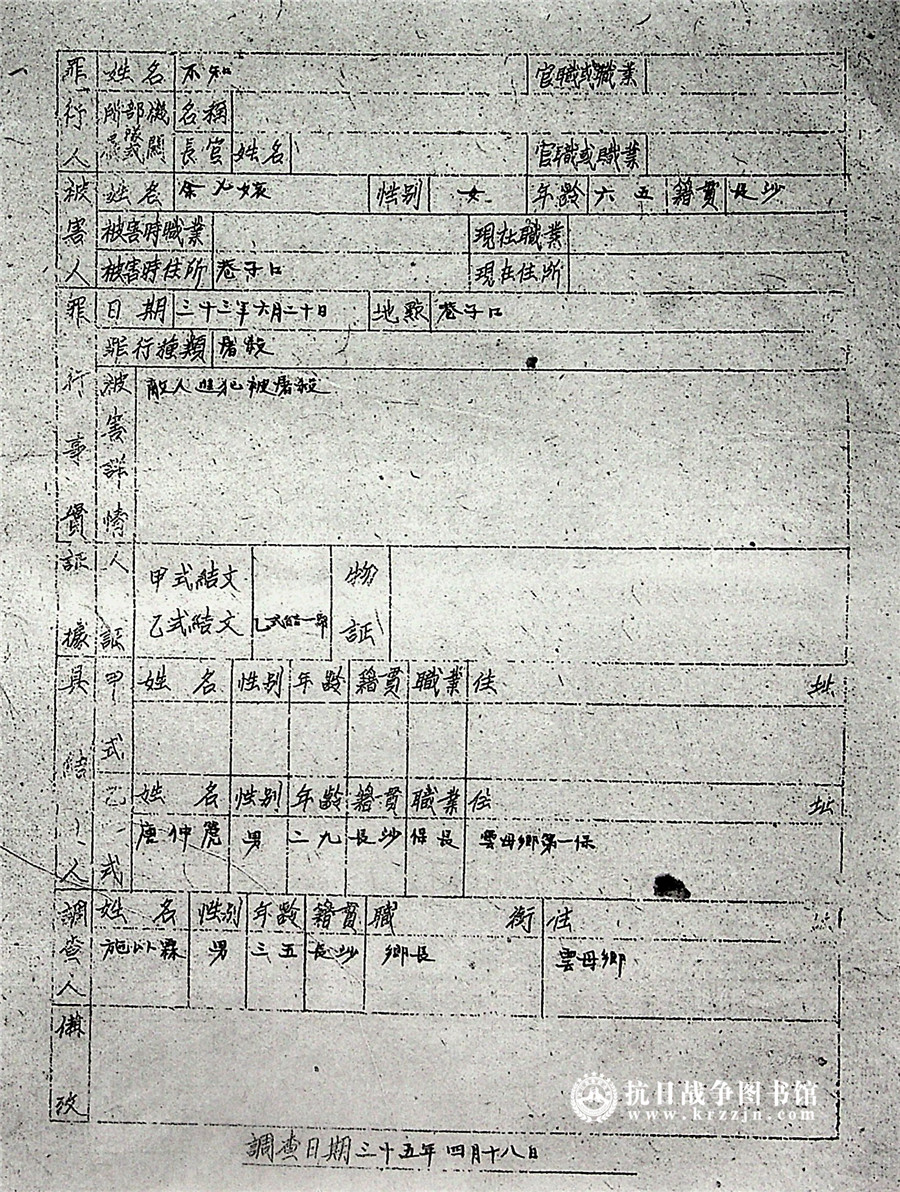 罪行人 姓名 不知 官職或職業
所部機關 名稱
長官姓名 官職或職業
被害人 姓名 余 性別 女 年齡 六五 籍貫 長沙
被害時職業 現在職業
被害時住所 巷子口 現在住所
罪行事實 日期 三十三年六月二十日 地點 巷子口
罪行種類 屠殺
被害詳情 敵人 犯被屠殺
証據 人証 甲式結文 乙式結文 乙式結一 物証
具結人 甲式 姓名 性別 年齡 籍貫 職業 住址
乙式 姓名 性別 年齡 籍貫 職業 住址
唐仲 男 二九 長沙 保長 雲母鄉第一保
調查人 姓名 性別 年齡 籍貫 職銜 住
施以霖 男 三五 長沙 鄉長 雲母鄉
備攷
調查日期 三十五年四月十八日
抗日战争图书馆
www.krzzjn.com